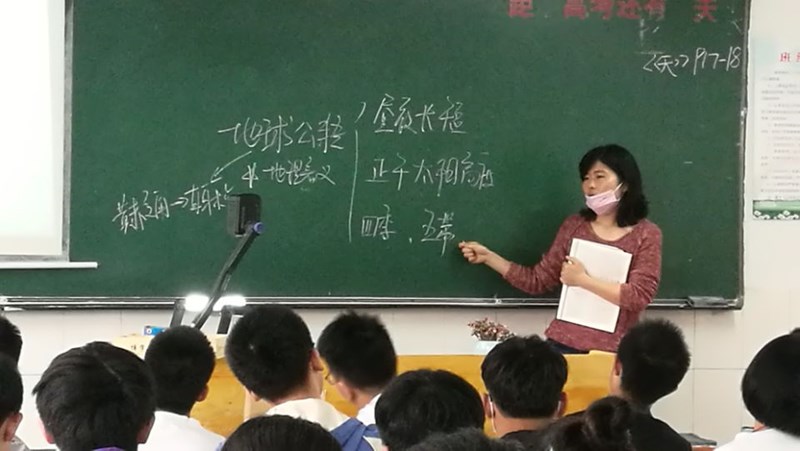 距 高考还有 天
《天》P17-18
地球公转
昼夜长短
正午太阳高度
地理意义
黄赤交角→
四季、五带